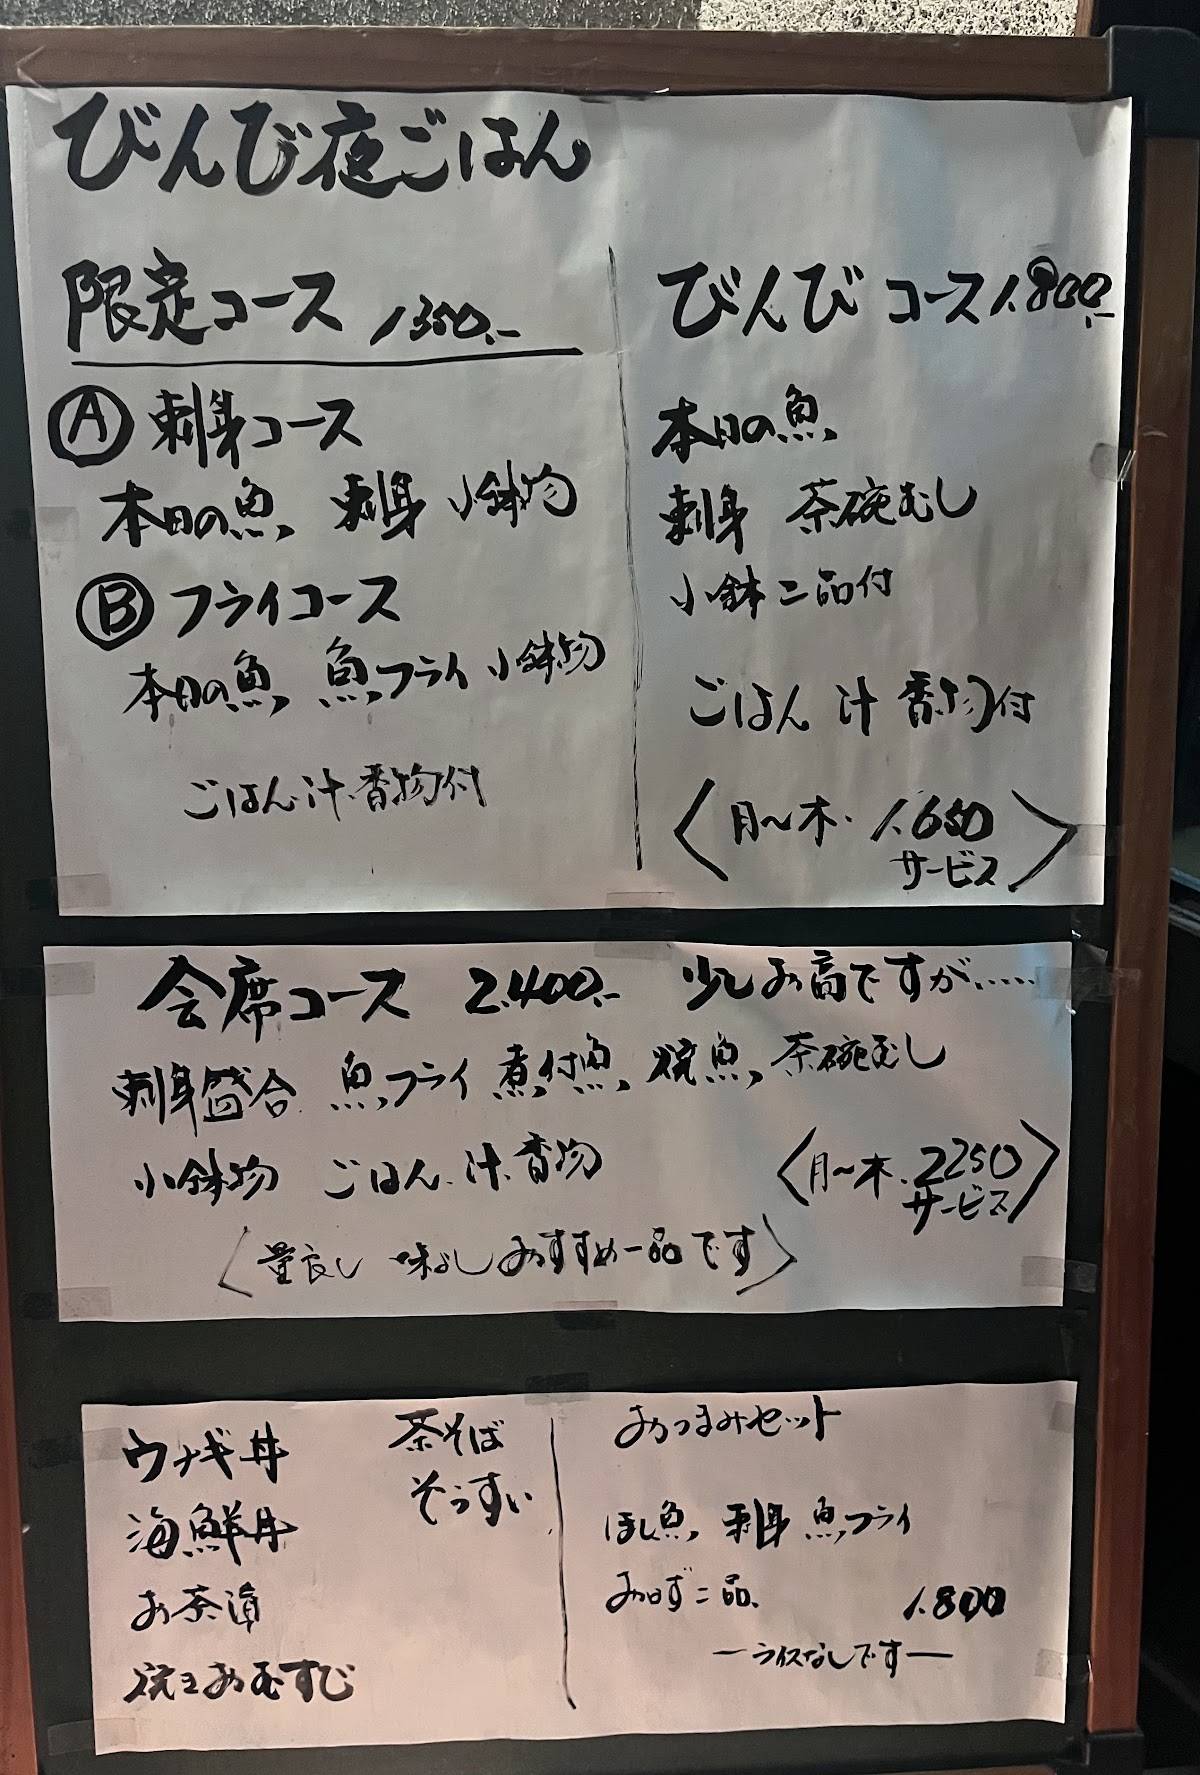 びんび夜ごはん
限定コース 1350.-
Ⓐ 刺身コース
本日の魚 刺身 小鉢物
Ⓑ フライコース
本日の魚 魚フライ 小鉢物
ごはん.汁.香物付
びんび コース 1.800.-
本日の魚
刺身 茶碗むし
小鉢二品付
ごはん 汁 香物付
〈月～木. 1.650
サービス〉
会席コース 2.400.- 少しお高ですが.....
刺身盛合 魚フライ 煮付魚 焼魚 茶碗むし
小鉢物 ごはん.汁.香物
〈月～木.2250
サービス〉
〈量良し 味よし おすすめ一品です〉
ウナギ丼
海鮮丼
お茶漬
焼きおむすび
茶そば
ぞうすい
おつまみセット
ほし魚 刺身 魚フライ
おかず二品. 1.800
ーライスなしですー